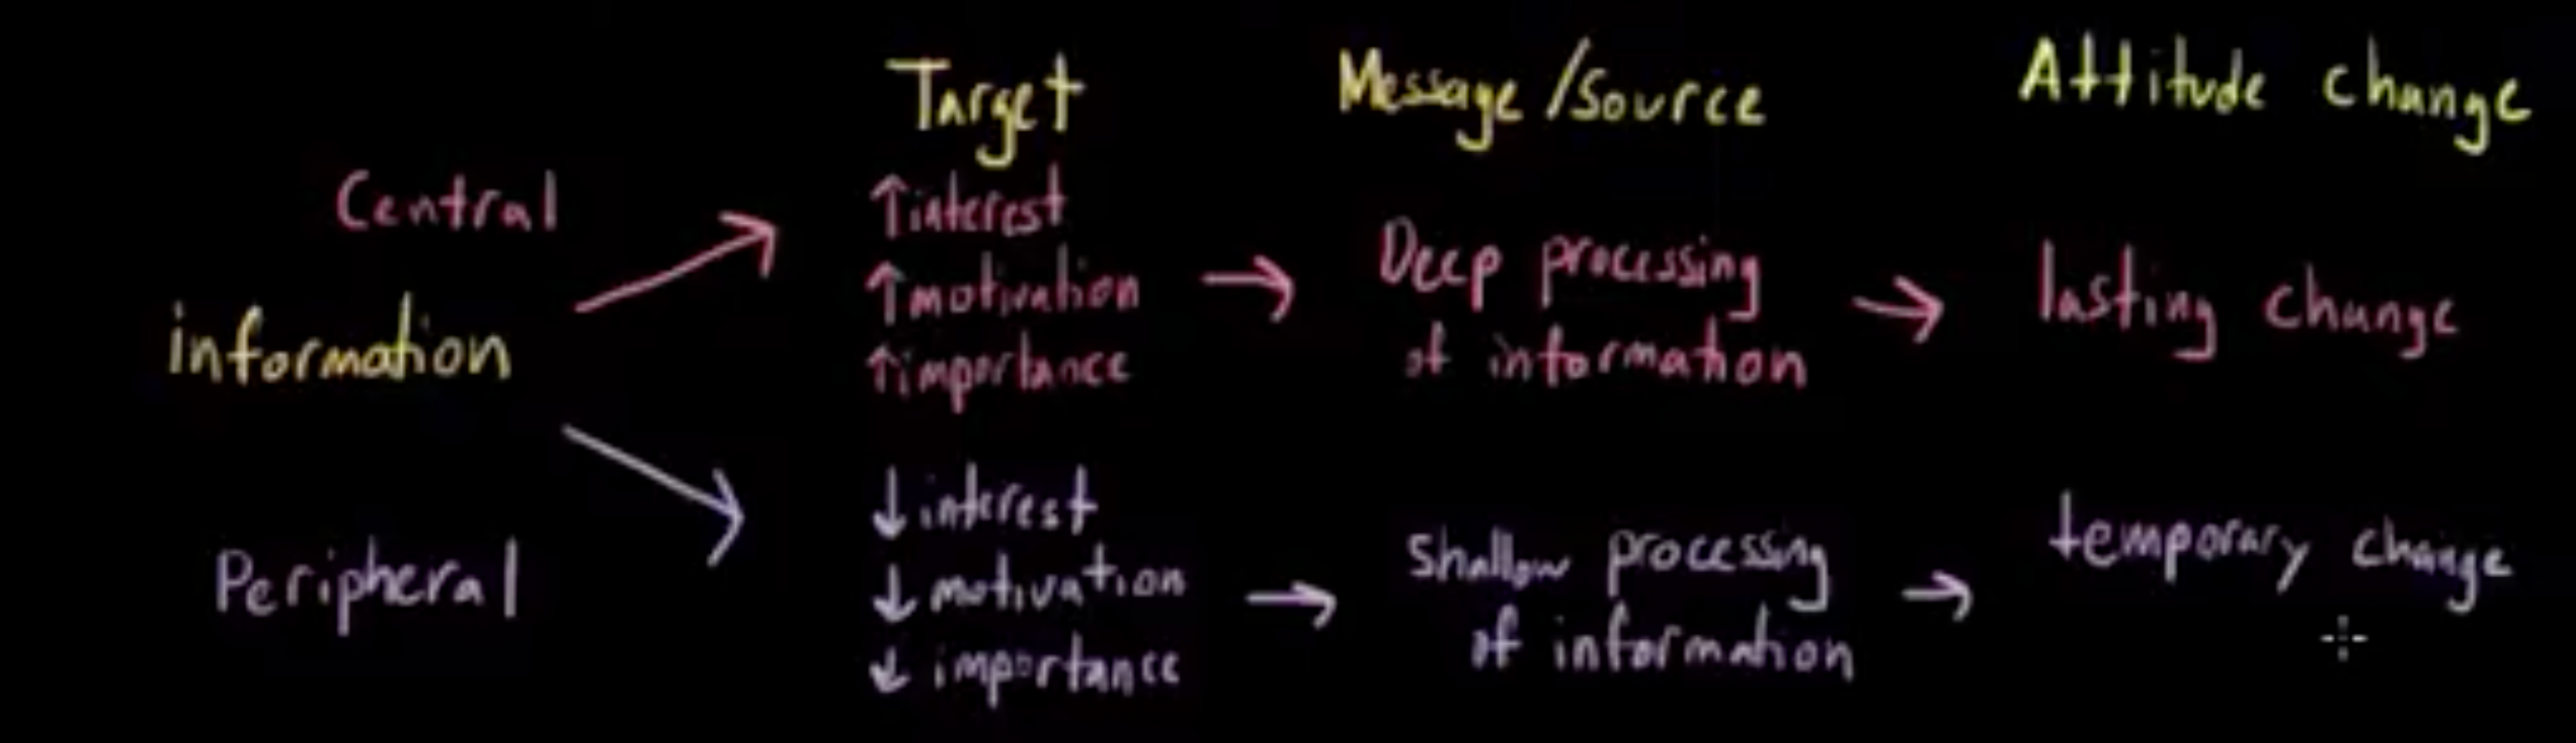 Target
Message/Source
Attitude change
Central
information
Peripheral
↑interest
↑motivation
↑importance
Deep processing
of information
lasting change
↓interest
↓motivation
↓importance
Shallow processing
of information
temporary change